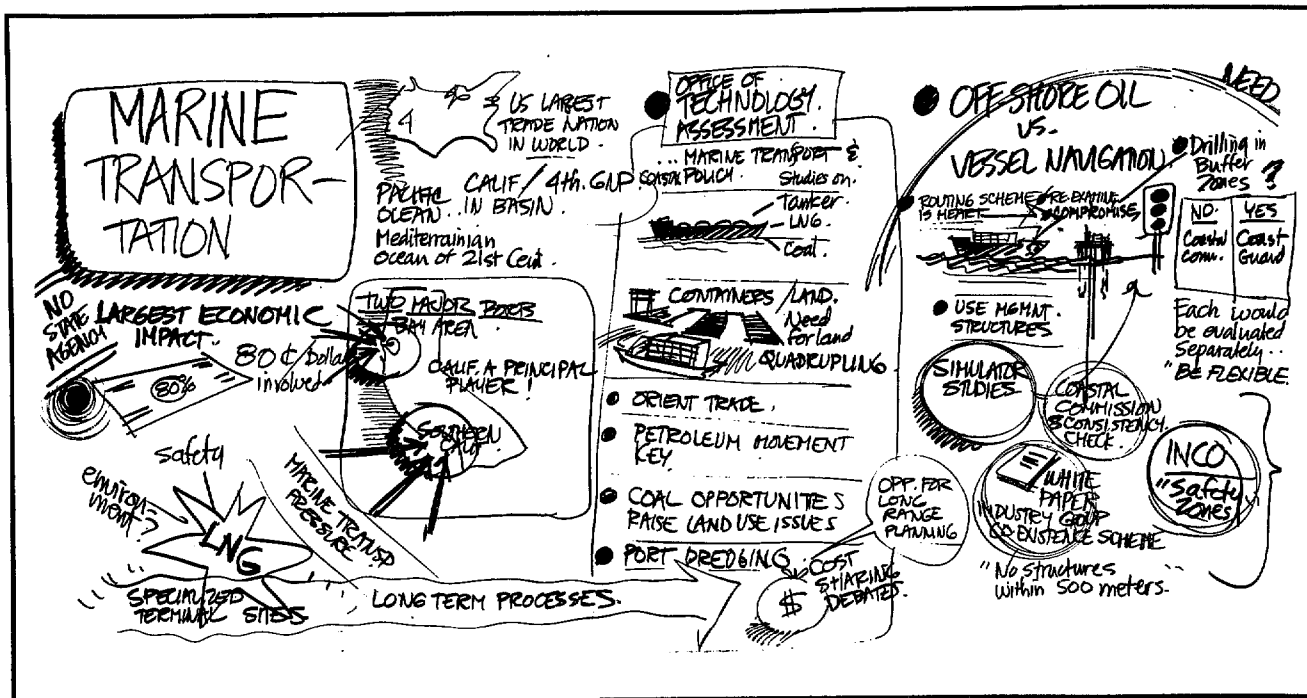 MARINE
TRANSPOR-
TATION
US LAREST
TRADE NATION
IN WORLD.
CALIF / 4th. GNP
IN BASIN.
PACIFIC
OCEAN..
Mediterrainian
Ocean of 21st Cent.
NO
STATE
AGENCY
LARGEST ECONOMIC
IMPACT.
80¢ Dollar
involved
80%
TWO MAJOR PORTS
BAY AREA
CALIF. A PRINCIPAL
PLAYER!
SOUTHERN
CALIF
safety
environ-
ment?
LNG
SPECIALIZED
TERMINAL SITES
MARINE TRANSP
PRESSURE
LONG TERM PROCESSES.
OFFICE OF
TECHNOLOGY.
ASSESSMENT.
... MARINE TRANSPORT &
COASTAL POLICY.
Studies on.
Tanker
LNG.
Coal.
CONTAINERS / LAND.
Need
for land
QUADRUPLING
ORIENT TRADE.
PETROLEUM MOVEMENT
KEY
COAL OPPORTUNITES
RAISE LAND USE ISSUES
PORT DREDGING
OPP. FOR
LONG
RANGE
PLANNING
$
COST
SHARING
DEBATED.
NEED
OFF SHORE OIL
VS.
VESSEL NAVIGATION.
ROUTING SCHEME
IS HEART
RE EXAMINE
COMPROMISE
Drilling in
Buffer
Zones ?
NO.
Coastal
Comm.
YES
Coast
Guard
Each would
be evaluated
separately..
"BE FLEXIBLE.
USE MGMNT
STRUCTURES
SIMULATOR
STUDIES
COASTAL
COMMISSION
& CONSISTENCY.
CHECK.
WHITE
PAPER
INDUSTRY GROUP
CO EXISTENCE SCHEME
"No structures
within 500 meters.
INCO
"Safety
Zones"